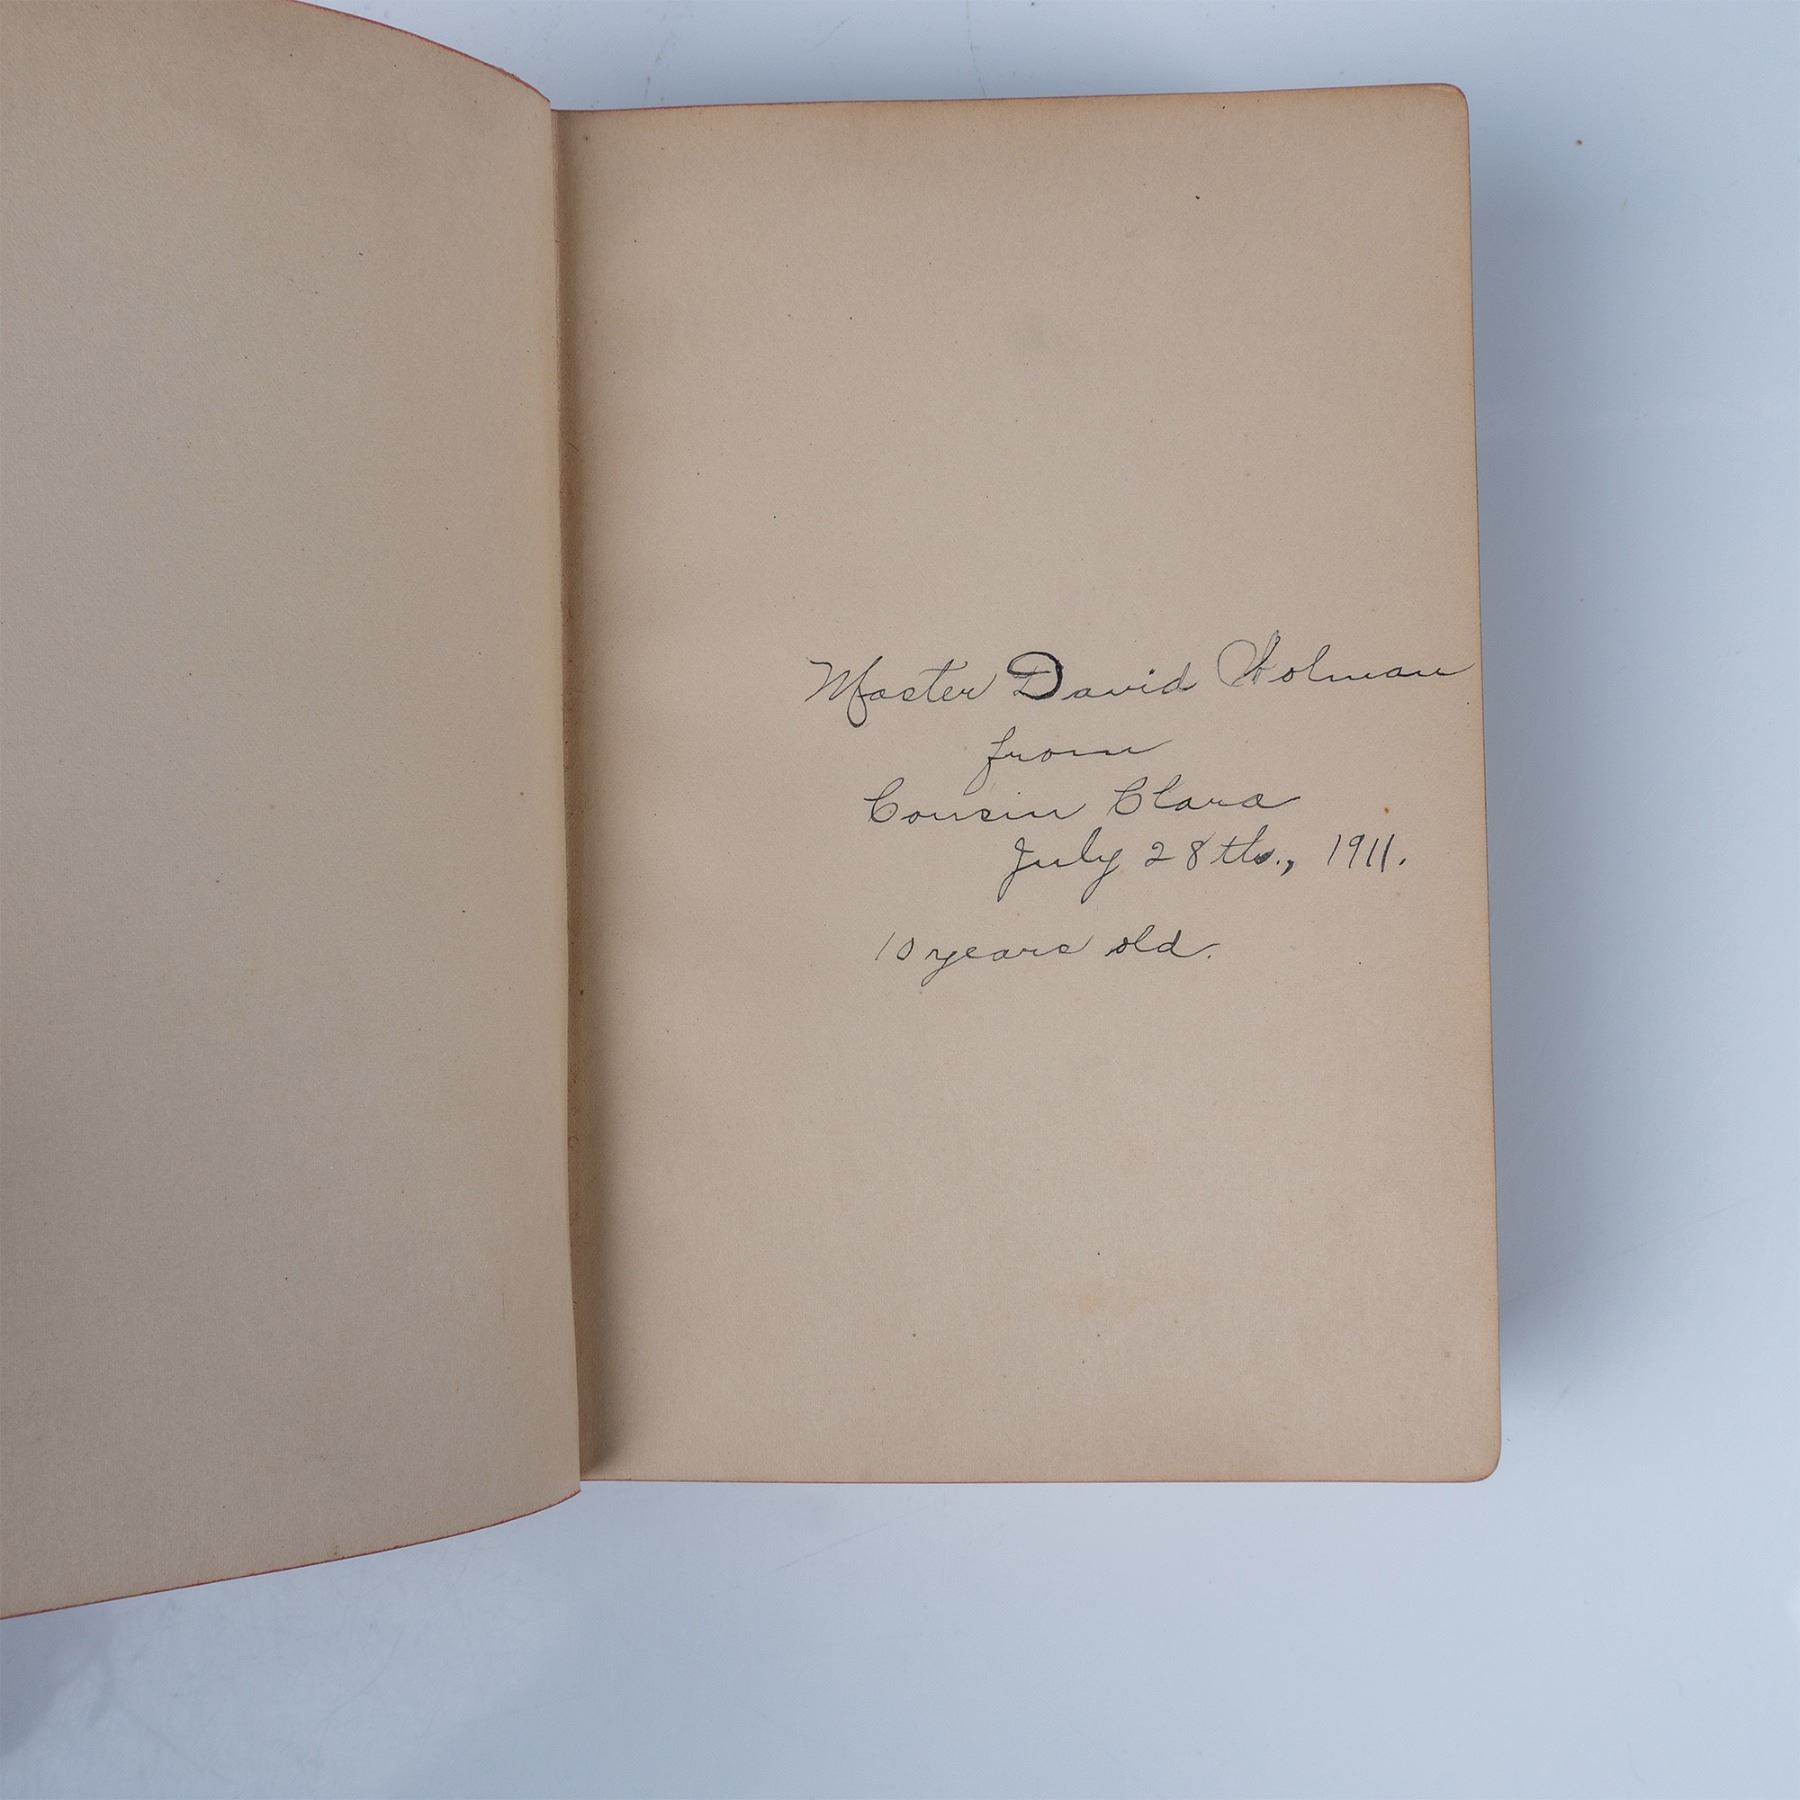 Master David Holman
from
Cousin Clara
July 28th., 1911.
10 years old.